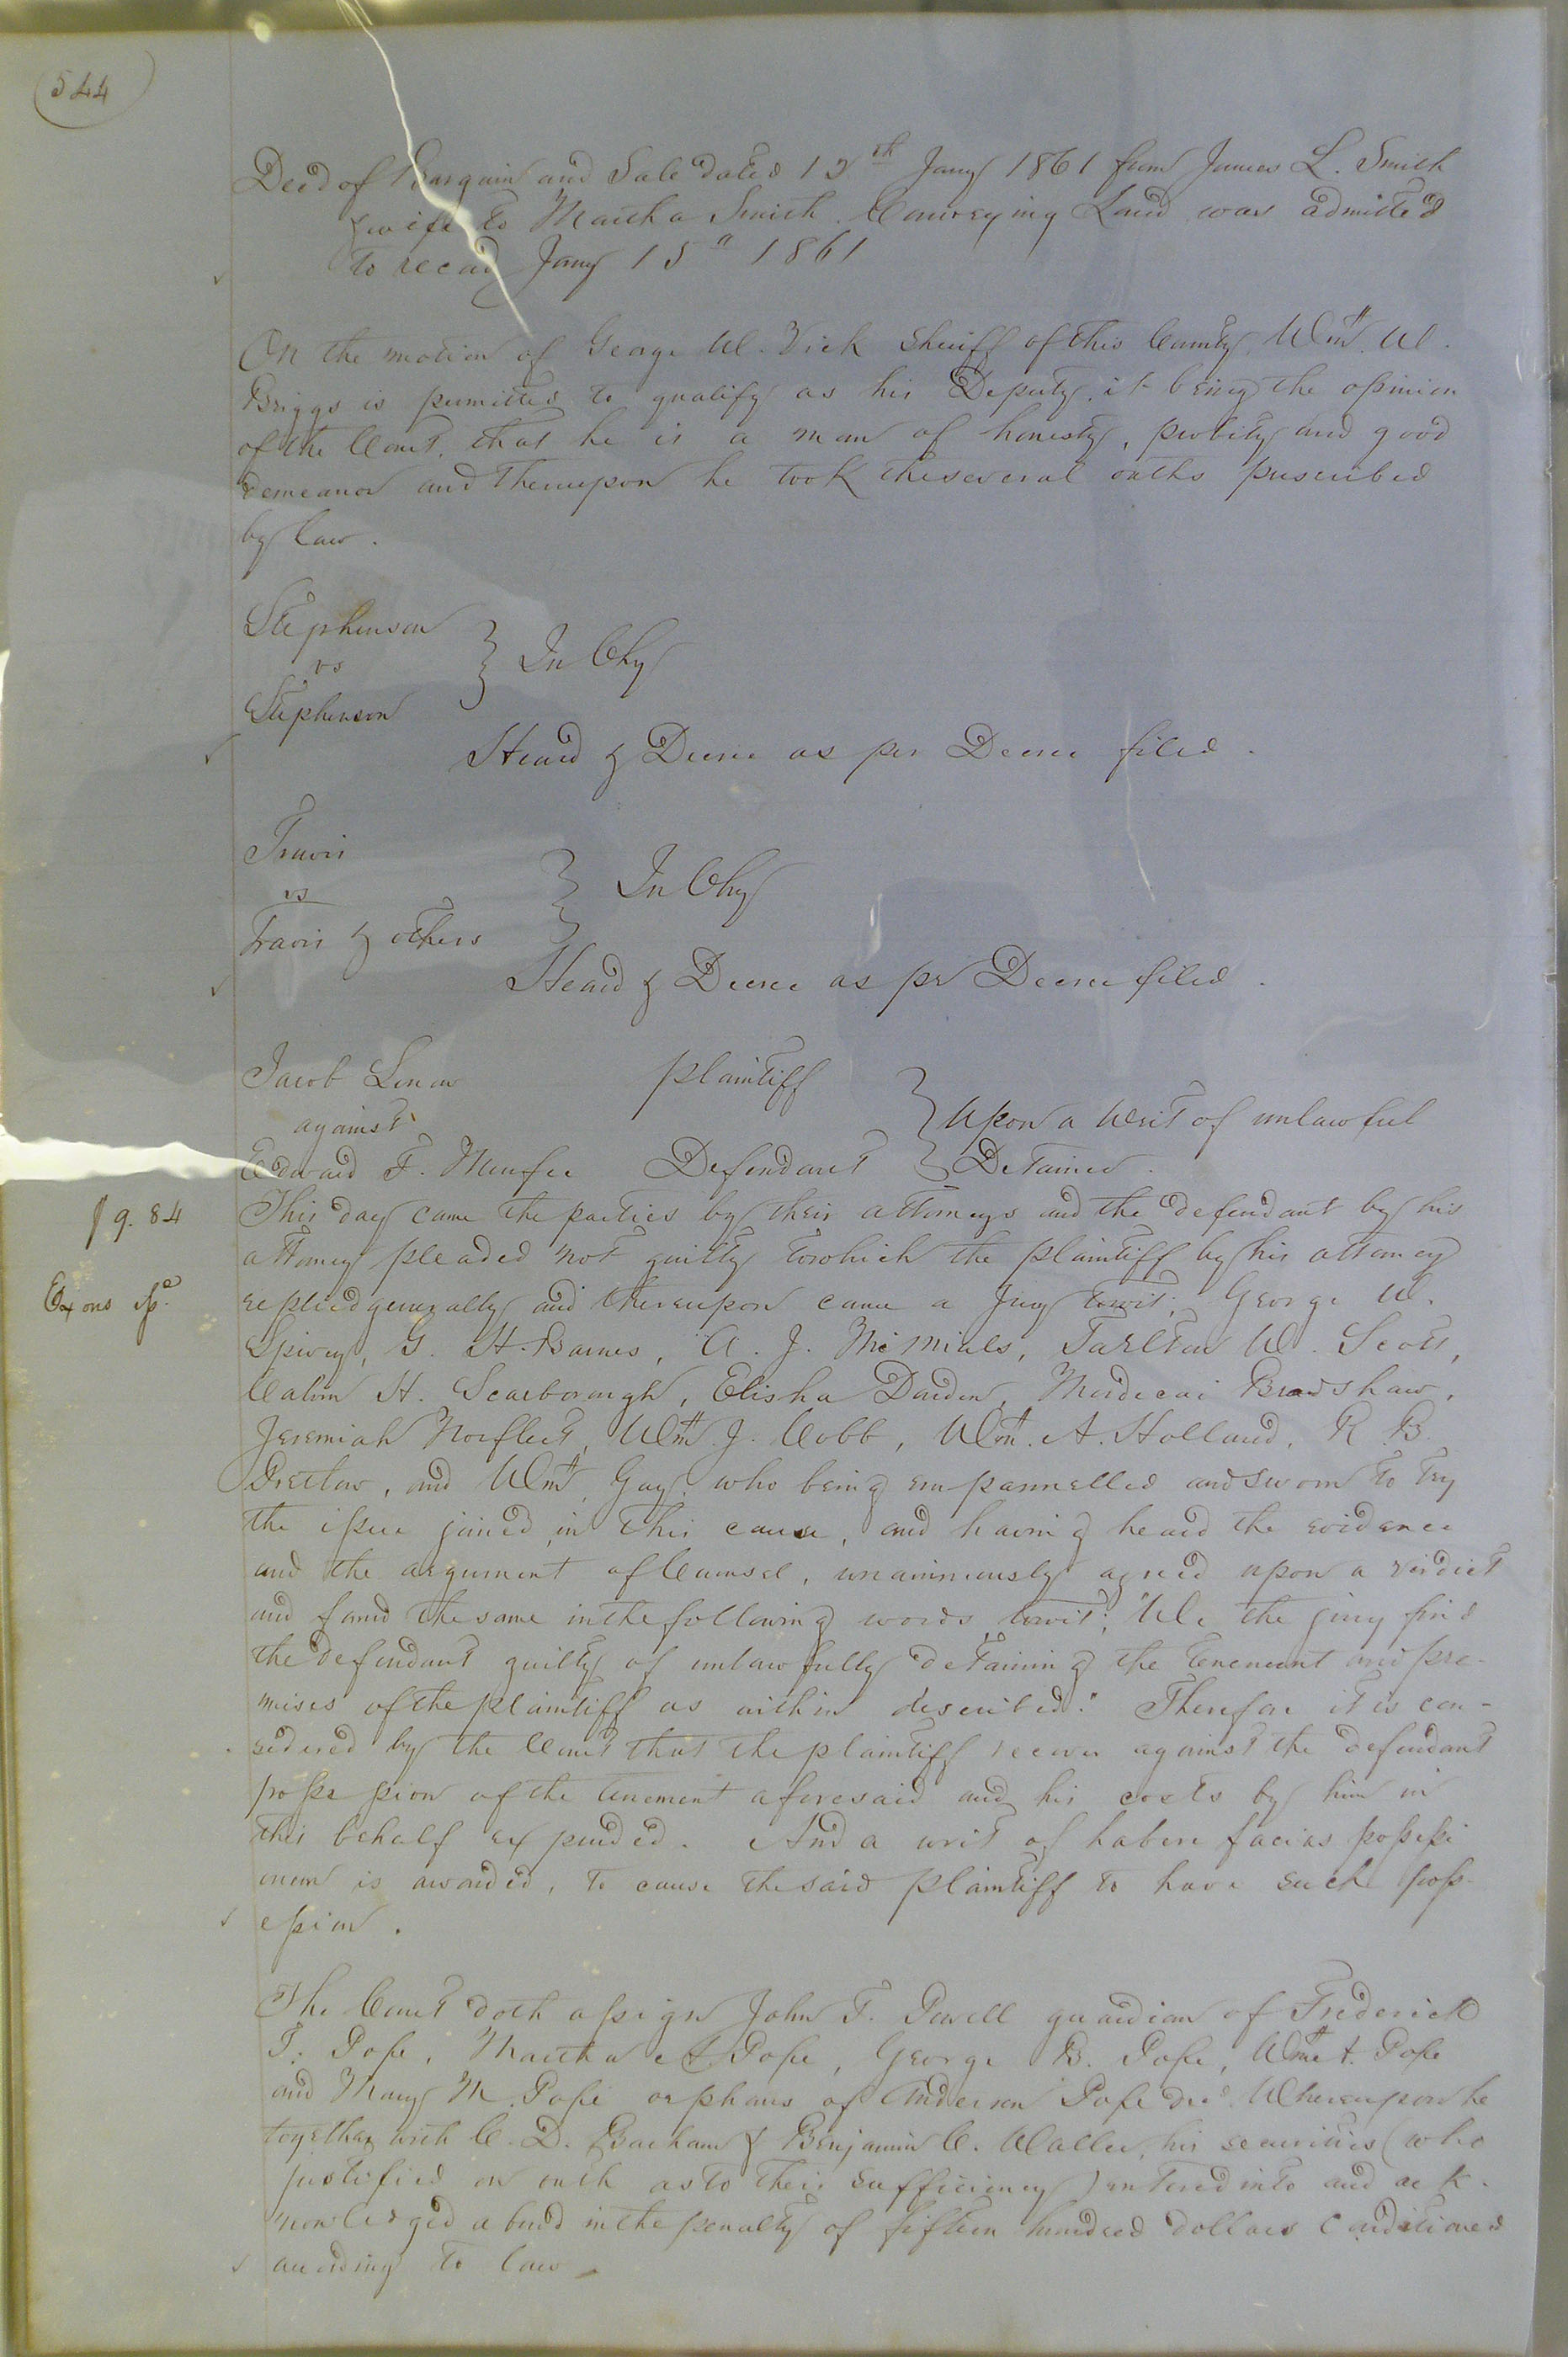 544
Deed of Bargain and Sale dated 15th Jany 1861 from James L. Smith
& wife to Martha Smith Conveying Land was admitted
to record Jany 15" 1861
On the motion of George W. Vick Sheriff of this County, Wm. W.
Briggs is permitted to qualify as his Deputy, it being the opinion
of the Court, that he is a man of honesty, probity and good
demeanor and thereupon he took the several oaths prescribed
by law.
Stephenson
vs } In Chy
Stephenson
Heard & Decree as per Decree filed.
Travis
vs } In Chy
Travis & others
Heard & Decree as pr Decree filed.
Jacob Lenow plaintiff
against } Upon a Writ of unlawful
Edward F. Menfee Defendant } Detainer.
This day came the parties by their attorneys and the defendant by his
$9.84
attorney pleaded not guilty to which the plaintiff by his attorney
replied generally and thereupon came a Jury towit; George W.
Spivey, G. H. Barnes, A. J. McMials, Tarlton W. Scott,
Calvin H. Scarborough, Elisha Darden, Mordecai Bradshaw,
Jeremiah Norfleet, Wm. J. Cobb, Wm. A. Holland, R. B.
Pretlow, and Wm. Gay, who being empannelled and sworn to try
the issue joined in this cause, and having heard the evidence
and the argument of Counsel, unanimously agreed upon a verdict
and found the same in the following words towit; "We the jury find
the defendant guilty of unlawfully detaining the tenement and pre-
mises of the plaintiff as within described." Therefore it is con-
sidered by the Court that the plaintiff recover against the defendant
possession of the tenement aforesaid and his costs by him in
this behalf expended. And a writ of habere facias possessi
onem is awarded, to cause the said plaintiff to have such poss-
ession.
The Court doth assign John T. Powell guardian of Frederick
T. Pope, Martha A. Pope, George B. Pope, Wm. A. Pope
and Mary M. Pope orphans of Anderson Pope decd Whereupon he
together with C. D. Barham & Benjamin C. Waller, his securities (who
justified on oath as to their sufficiency) entered into and ack-
nowledged a bond in the penalty of fifteen hundred dollars conditioned
according to law